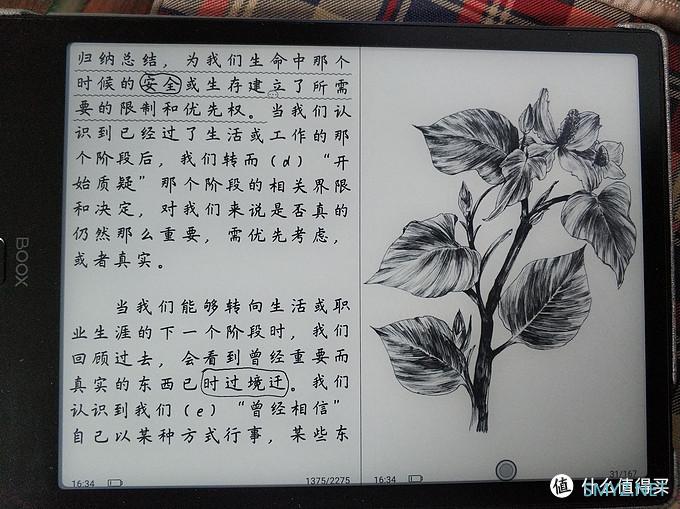 归纳总结，为我们生命中那个
时候的安全或生存建立了所需
要的限制和优先权。当我们认
识到已经过了生活或工作的那
个阶段后，我们转而(d)“开
始质疑”那个阶段的相关界限
和决定，对我们来说是否真的
仍然那么重要，需优先考虑，
或者真实。
当我们能够转向生活或职
业生涯的下一个阶段时，我们
回顾过去，会看到曾经重要而
真实的东西已时过境迁。我们
认识到我们(e)“曾经相信”
自己以某种方式行事，某些东
16:34
1375/2275
16:34
31/167
BOOX
值 什么值得买
SMYZ.NET